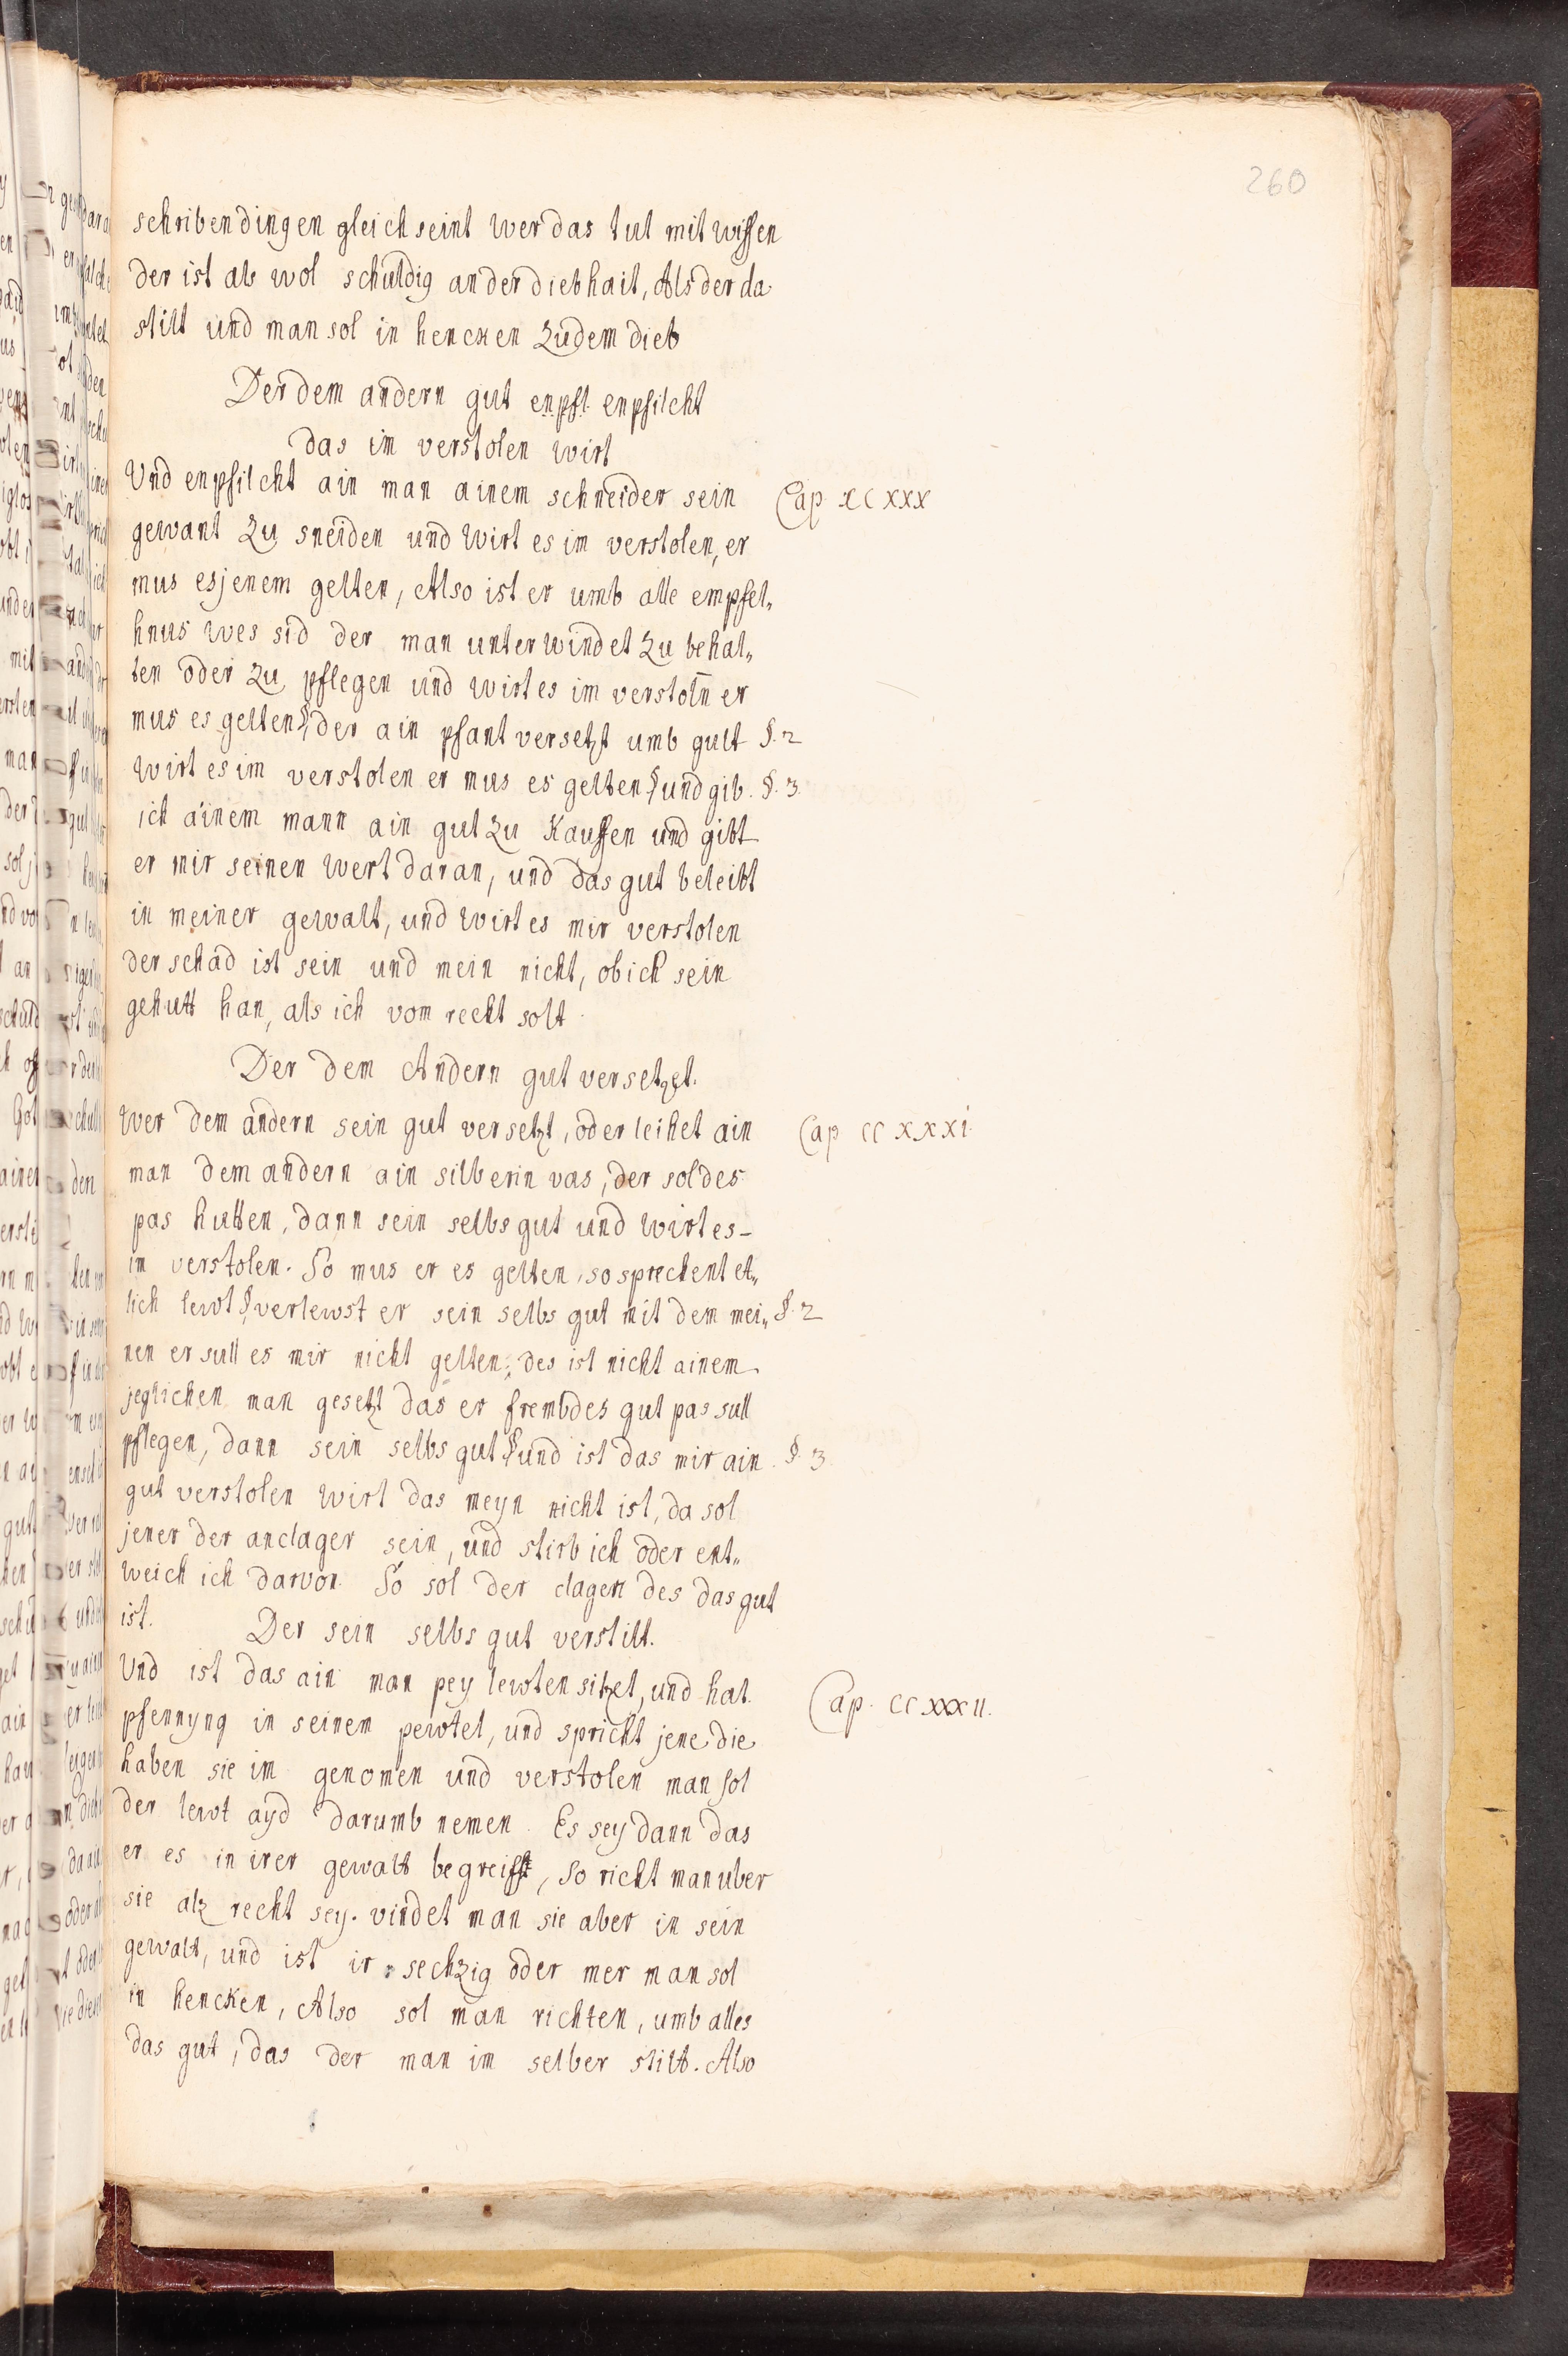 260
schriben dingen gleich seint wer das tut mit wissen
der ist als wol schuldig an der diebhait, Als der da
stilt und man sol in hencken zu dem dieb
Der dem andern gut enpfl. enpfilcht
das im verstolen wirt
Und enpfilcht ain man ainem schneider sein
Cap. CCXXX
gewant zu sneiden und wirt es im verstolen, er
mus es jenem gelten, Also ist er umb alle empfel„
hnus wes sid der man unterwindet zu behal„
ten oder zu pflegen und wirt es im verstoln̄ er
mus es gelten § der ain pfant versetzt umb gult §. 2
wirt es im verstolen er mus es gelten § und gib. §. 3.
ich ainem mann ain gut zu kauffen und gibt
er mir seinen wert daran, und das gut beleibt
in meiner gewalt, und wirt es mir verstolen
der schad ist sein und mein nicht, ob ich sein
gehutt han, als ich vom recht solt.
Der dem Andern gut versetzet.
Wer dem andern sein gut versetzt, oder leihet ain
Cap CCXXXI
man dem andern ain silberin vas, der sol des
pas hutten, dann sein selbs gut und wirt es-
im verstolen. So mus er es gelten, so sprechent et„
lich lewt § verlewst er sein selbs gut mit dem mei„ §. 2
nen er sull es mir nicht gelten, des ist nicht ainem
jeglichen man gesetzt das er frembdes gut pas sull
pflegen, dann sein selbs gut § und ist das mir ain. §. 3
gut verstolen wirt das meyn nicht ist, da sol
jener der anclager sein, und stirb ich oder ent„
weich ich darvon. So sol der clagen des das gut
ist. Der sein selbs gut verstilt.
Und ist das ain man pey lewten sitzet, und hat
Cap. CCXXXII.
pfennyng in seinem pewtel, und spricht jene die
haben sie im genomen und verstolen man sol
der lewt ayd darumb nemen. Es sey dann das
er es in irer gewalt begreifft, so richt man uber
sie alz recht sey. vindet man sie aber in sein
gewalt, und ist ir sechzig oder mer man sol
in hencken, Also sol man richten, umb alles
das gut, das der man im selber stilt. Also